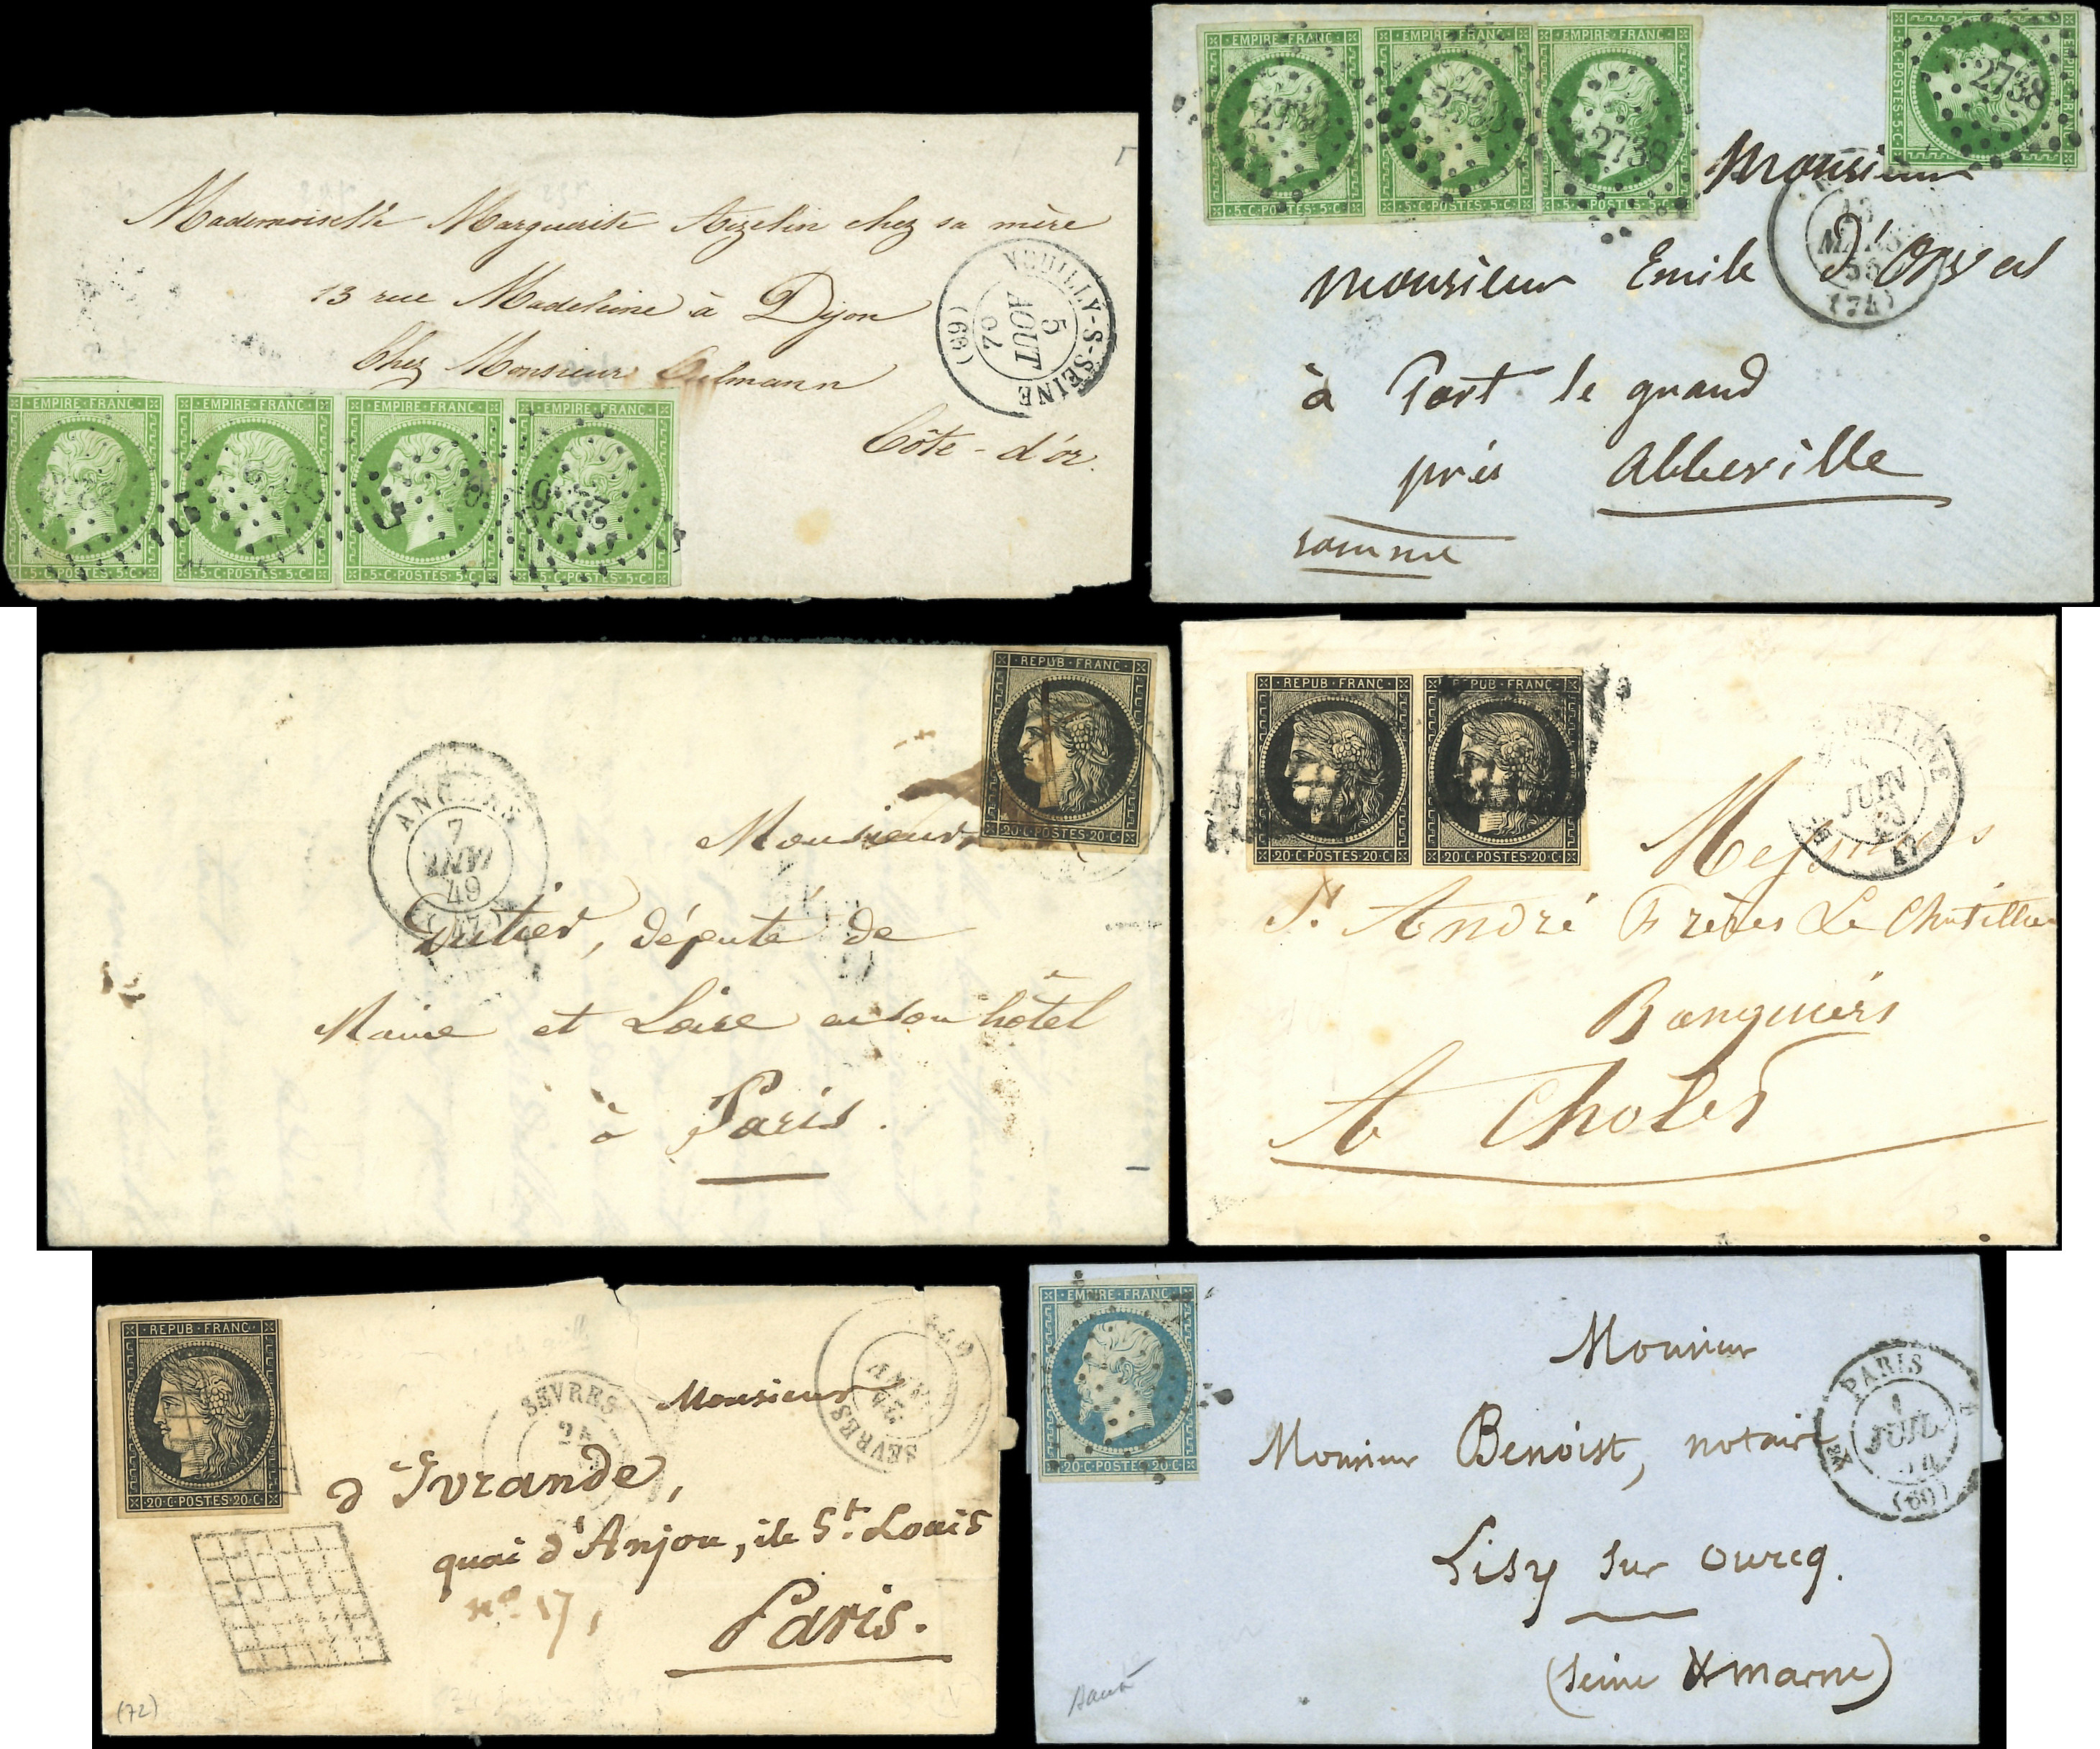 Mademoiselle Marguerite Azelin chez sa mère
13 rue Madeleine à Dijon
Chez Monsieur Culmann
Côte-d'or.
NEUILLY-S-SEINE
5
AOUT
70
(69)
EMPIRE·FRANC· EMPIRE·FRANC· EMPIRE·FRANC· EMPIRE·FRANC·
5·C·POSTES·5·C· 5·C·POSTES·5·C· 5·C·POSTES·5·C· 5·C·POSTES·5·C·
EMPIRE·FRANC· EMPIRE·FRANC· EMPIRE·FRANC·
2738 2738 2738
5·C·POSTES·5·C· 5·C·POSTES·5·C· 5·C·POSTES·5·C·
EMPIRE·FRANC·
2738
5·C·POSTES·5·C·
Monsieur
Monsieur Emile d'Orval
à Port le grand
près Abbeville
somme
13
MARS
(74)
REPUB·FRANC·
20·C·POSTES·20·C·
ANGERS
7
JANV
49
Monsieur
Gutier, député de
Maine et Loire en son hôtel
à Paris.
REPUB·FRANC· REPUB·FRANC·
20·C·POSTES·20·C· 20·C·POSTES·20·C·
JUIN
Messieurs
St André Frères Le Chatillier
Banquiers
A Cholet
REPUB·FRANC·
20·C·POSTES·20·C·
SEVRES
24
SEVRES
24
JANV
Monsieur
d'Ivrande,
quai d'Anjou, ile St. Louis
No. 17,
Paris.
(72)
EMPIRE·FRANC·
20·C·POSTES·20·C·
PARIS
1
JUIL.
54
(60)
Monsieur
Monsieur Benoist, notaire
Lisy sur ourcq.
(Seine & marne)